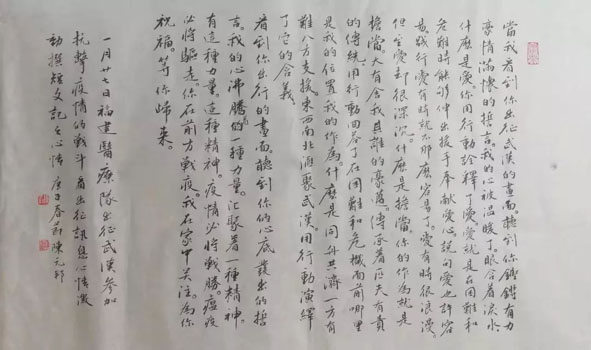 當我看到你出征武漢的畫面聽到你鏗鏘有力
豪情滿懷的誓言。我的心被温暖了眼含着淚水
什麽是愛。你用行動詮釋了愛愛就是在困難和
危難時能够伸出援手奉献愛心説句愛也許容
易踐行愛有時就不那麽容易了。愛有時很浪漫。
但至愛却很深沉。什麽是擔當。你的作爲就是
擔當。大有舍我其誰的豪邁。傳承着匹夫有責
的傳統用行動回答了在困難和危機面前哪里
是我的位置我的作爲。什麽是同舟共濟一方有
難八方支援。東西南北滙聚武漢用行動演繹
了它的含義
看到你出行的畫面聽到你們心底發出的誓
言。我的心沸騰的一種力量。汇聚着一種精神。
有這種力量這種精神。疫情必將戰勝。瘟疫
必將驅走你在前方戰疫。我在家中关注。爲你
祝福。等你歸來。
一月廿七日福建醫療隊出征武漢参加
抗擊疫情的戰斗看出征訊息心情激
動撰短文記之心情庚子春節陳元邦